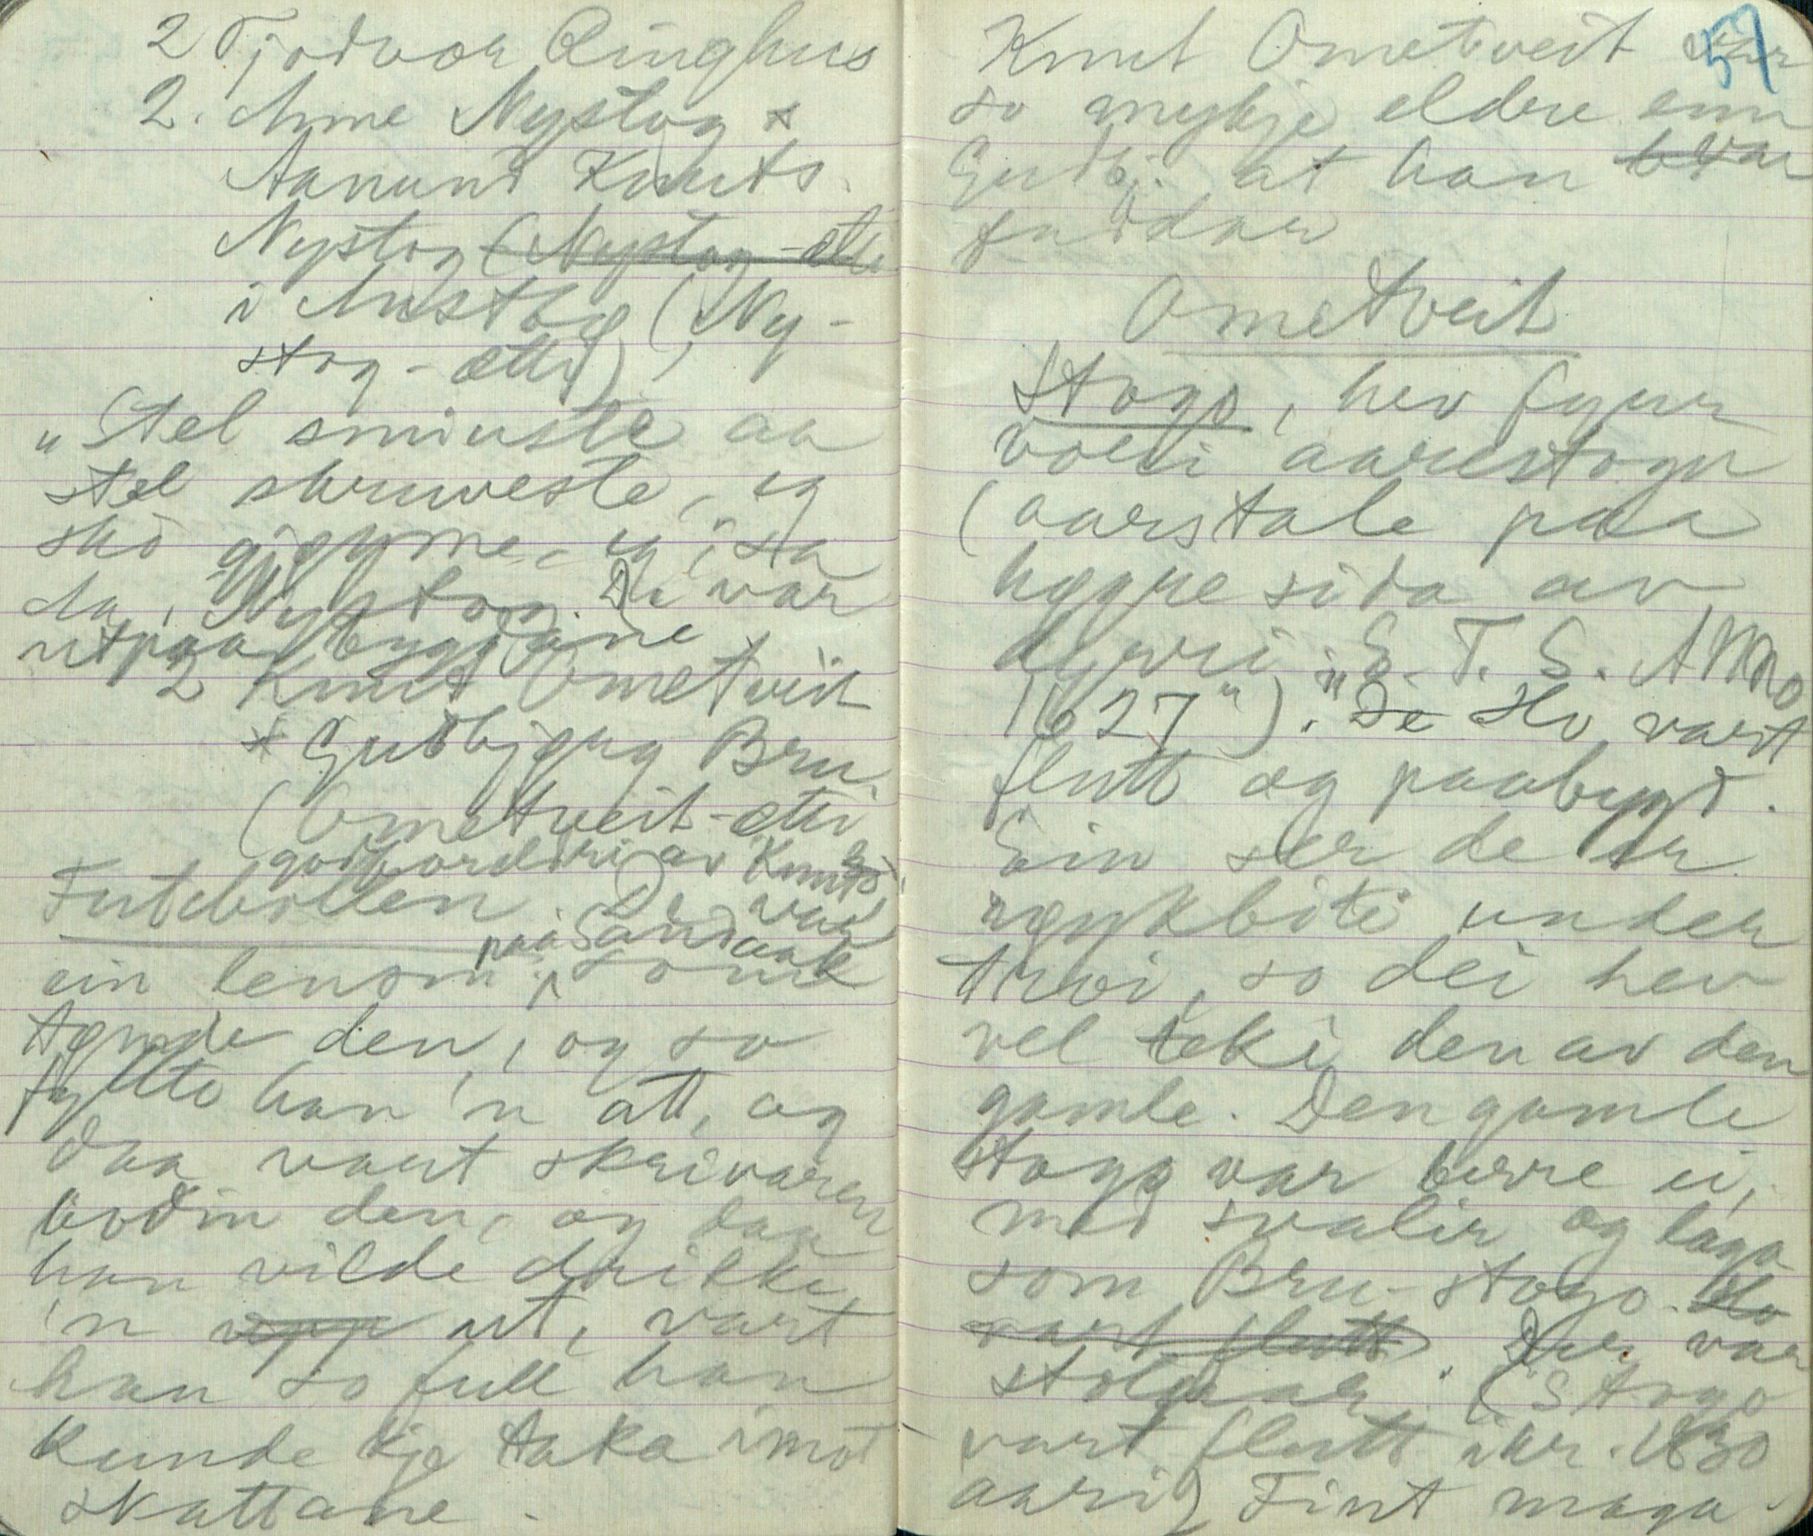 2 Tjodvor Ringhus
2. Anne Nystog x
Aanund Knuts.
Nystog (Nystog-ætti
i Austbø (Ny-
stog-ætti)
"Stel sminste aa
stel skruveste, eg
sko gjøyme, eg", sa
ho, Nystog. De var
utpaa bygdane
2 Knut Ometveit
x Gudbjørg Bru
(Ometveit-ætti
godfordri av Knuts
Futebollen. De var
ein lensm. paa Sandaak som
tømde den, og so
fyllte han 'n att, og
daa vart skrivaren
bodin den, og daa
han vilde drikke
'n upp ut, vart
han so full han
kunde kje taka imot
skattane.
57
Knut Ometveit var
so mykje eldre enn
Gudbj. at han var
faddar
Ometveit
Stogo, hev fyrr
vori aarestoga
(aarstale paa
høgre sida av
dyrri "E. T. S. ANNO
1627"). De Ho vart
flutt og paabygd.
Ein ser de er
røykbite under
troi, so dei hev
vel teki den av den
gamle. Den gamle
stogo var berre ei,
med svalir og laga
som Bru-stogo. Ho
vart flutt. Dei var
stolpar. (Stogo
vart flutt ikr. 1830
aari) Fint maga-